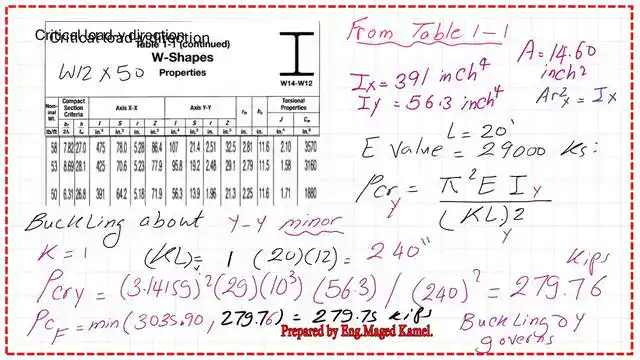 Critical load-y direction
Critical load-y direction
Table 1-1 (continued)
W-Shapes
Properties
W14-W12
W12 x 50
Nom-inal Wt. Compact Section Criteria Axis X-X Axis Y-Y rts ho Torsional Properties
bf/2tf h/tw I S r Z I S r Z J Cw
lb/ft in.⁴ in.³ in. in.³ in.⁴ in.³ in. in.³ in. in. in.⁴ in.⁶
58 7.82 27.0 475 78.0 5.28 86.4 107 21.4 2.51 32.5 2.81 11.6 2.10 3570
53 8.69 28.1 425 70.6 5.23 77.9 95.8 19.2 2.48 29.1 2.79 11.5 1.58 3160
50 6.31 26.8 391 64.2 5.18 71.9 56.3 13.9 1.96 21.3 2.25 11.6 1.71 1880
From Table 1-1
A = 14.60 inch²
Ix = 391 inch⁴
Iy = 56.3 inch⁴
Ar²x = Ix
L = 20'
E value = 29000 Ksi
Pcry = π² E Iy / (KL)y²
Buckling about Y-Y minor
K = 1 (KL)y = 1 (20)(12) = 240"
Pcry = (3.14159)²(29)(10³)(56.3) / (240)² = 279.76 Kips
PcF = min(3035.90, 279.76) = 279.75 kips
Prepared by Eng.Maged Kamel.
Buckling y governs